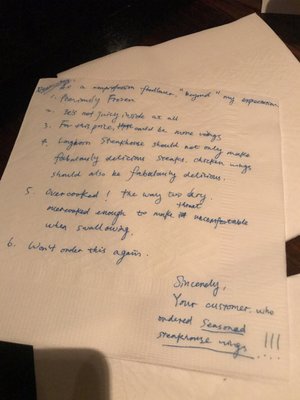 As a nonprofession foodlover, "beyond" my expectation
1. Previously Frozen
2. It's not juicy inside at all
3. For this price, could be more wings
4. Longhorn Steakhouse should not only make
fabulously delicious steaks, chicken wings
should also be fabulously delicious.
5. Overcooked! the way too dry.
overcooked enough to make throat uncomfortable
when swallowing.
6. Won't order this again.
Sincerely,
Your customer who
ordered Seasoned
steakhouse wings !!!
....